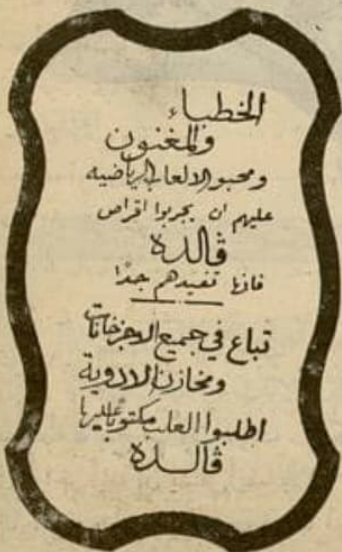 الخطباء
والمغنون
ومحبو الالعاب الرياضيه
عليهم ان يجربوا اقراص
ڤالده
فانها تفيدهم جدًا
تباع في جميع الاجزخانات
ومخازن الادوية
اطلبوا العلب مكتوبا عليها
ڤالده